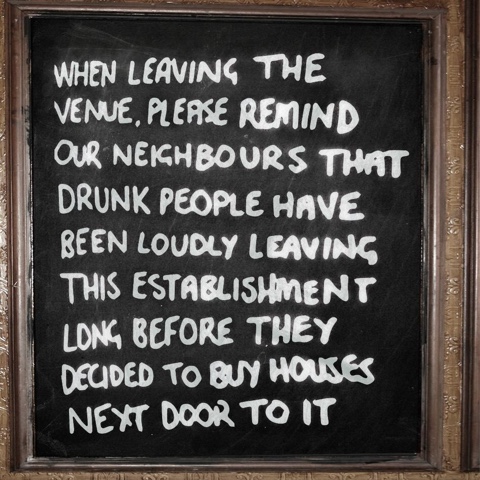 WHEN LEAVING THE
VENUE, PLEASE REMIND
OUR NEIGHBOURS THAT
DRUNK PEOPLE HAVE
BEEN LOUDLY LEAVING
THIS ESTABLISHMENT
LONG BEFORE THEY
DECIDED TO BUY HOUSES
NEXT DOOR TO IT